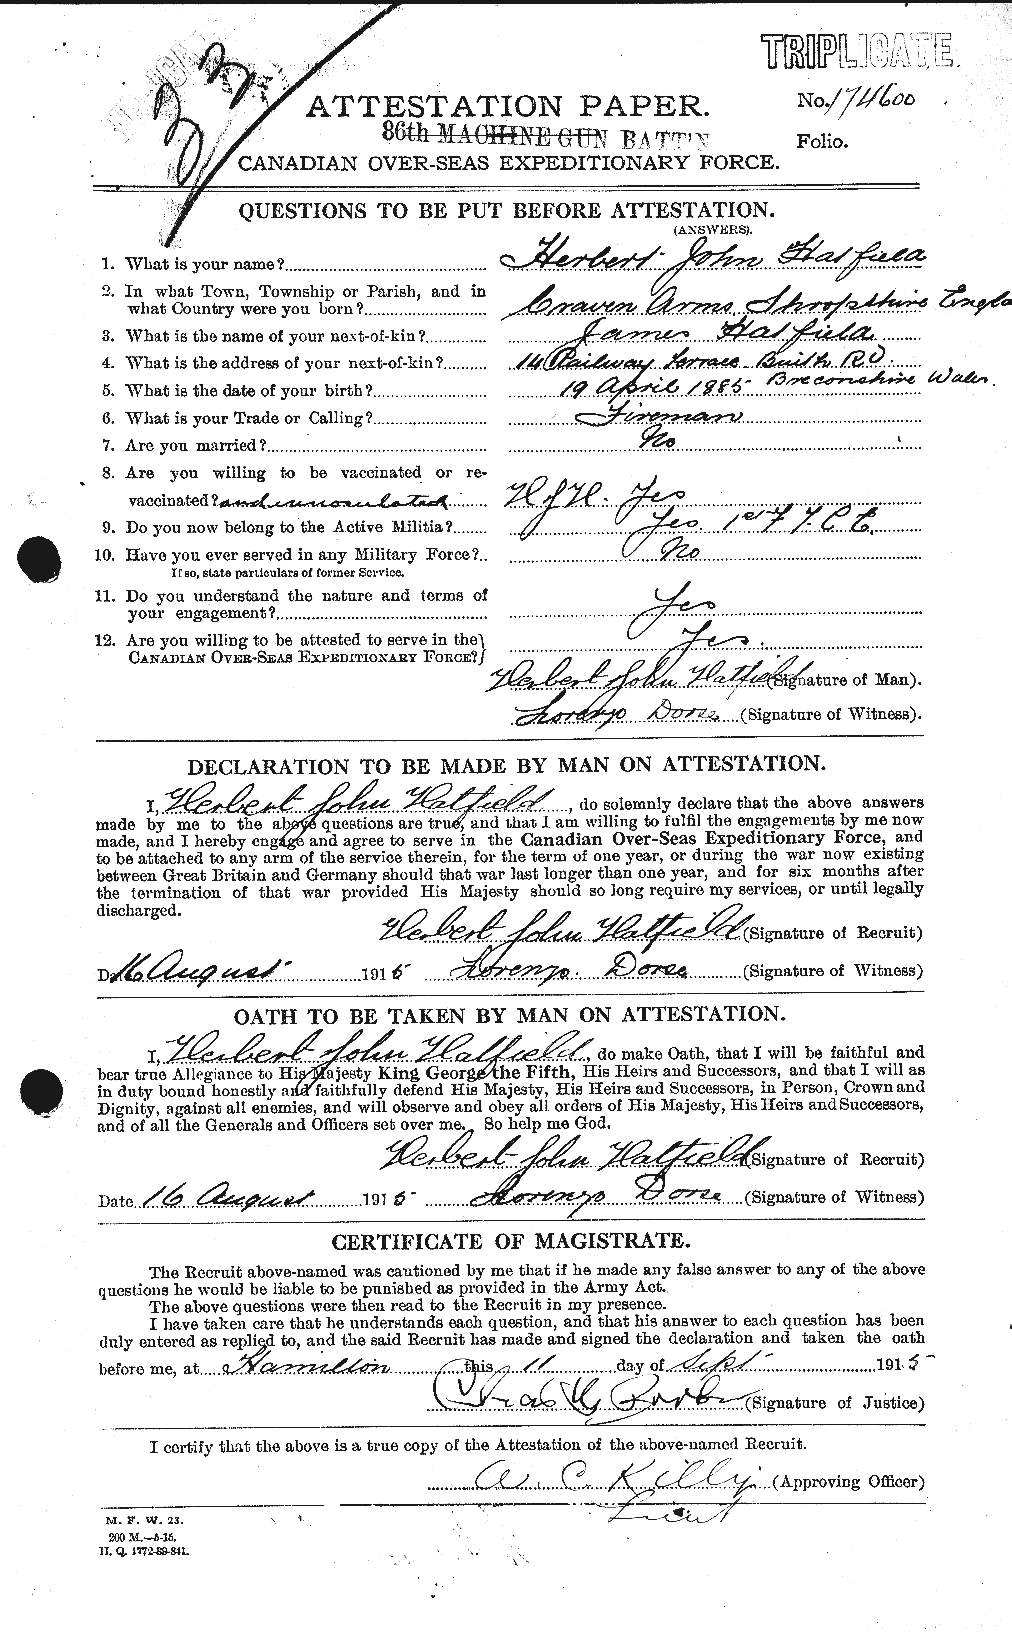 TRIPLICATE.
33
ATTESTATION PAPER.
No. 174600
86th MACHINE GUN BATT'N
Folio.
CANADIAN OVER-SEAS EXPEDITIONARY FORCE.
QUESTIONS TO BE PUT BEFORE ATTESTATION.
(ANSWERS).
1. What is your name? Herbert John Hatfield
2. In what Town, Township or Parish, and in
what Country were you born? Craven Arms Shropshire Engla
3. What is the name of your next-of-kin? James Hatfield
4. What is the address of your next-of-kin? 14 Railway Terrace Builth RD.
Breconshire Wales.
5. What is the date of your birth? 19 April 1885
6. What is your Trade or Calling? Fireman
7. Are you married? No
8. Are you willing to be vaccinated or re-
vaccinated? and innoculated H J H. Yes
9. Do you now belong to the Active Militia? Yes.
10. Have you ever served in any Military Force? No
If so, state particulars of former Service.
11. Do you understand the nature and terms of
your engagement? Yes
12. Are you willing to be attested to serve in the
CANADIAN OVER-SEAS EXPEDITIONARY FORCE? Yes.
Herbert John Hatfield (Signature of Man).
Lorenzo Dorse (Signature of Witness).
DECLARATION TO BE MADE BY MAN ON ATTESTATION.
I, Herbert John Hatfield, do solemnly declare that the above answers
made by me to the above questions are true, and that I am willing to fulfil the engagements by me now
made, and I hereby engage and agree to serve in the Canadian Over-Seas Expeditionary Force, and
to be attached to any arm of the service therein, for the term of one year, or during the war now existing
between Great Britain and Germany should that war last longer than one year, and for six months after
the termination of that war provided His Majesty should so long require my services, or until legally
discharged.
Herbert John Hatfield (Signature of Recruit)
D 16 August 1915 Lorenzo. Dorse (Signature of Witness)
OATH TO BE TAKEN BY MAN ON ATTESTATION.
I, Herbert John Hatfield, do make Oath, that I will be faithful and
bear true Allegiance to His Majesty King George the Fifth, His Heirs and Successors, and that I will as
in duty bound honestly and faithfully defend His Majesty, His Heirs and Successors, in Person, Crown and
Dignity, against all enemies, and will observe and obey all orders of His Majesty, His Heirs and Successors,
and of all the Generals and Officers set over me. So help me God.
Herbert John Hatfield (Signature of Recruit)
Date 16 August 1915 Lorenzo Dorse (Signature of Witness)
CERTIFICATE OF MAGISTRATE.
The Recruit above-named was cautioned by me that if he made any false answer to any of the above
questions he would be liable to be punished as provided in the Army Act.
The above questions were then read to the Recruit in my presence.
I have taken care that he understands each question, and that his answer to each question has been
duly entered as replied to, and the said Recruit has made and signed the declaration and taken the oath
before me, at Hamilton this 11 day of Sept 1915
(Signature of Justice)
I certify that the above is a true copy of the Attestation of the above-named Recruit.
A. C. Killy. (Approving Officer)
Lieut
M. F. W. 23.
200 M.—5-15.
H. Q. 1772-39-841.